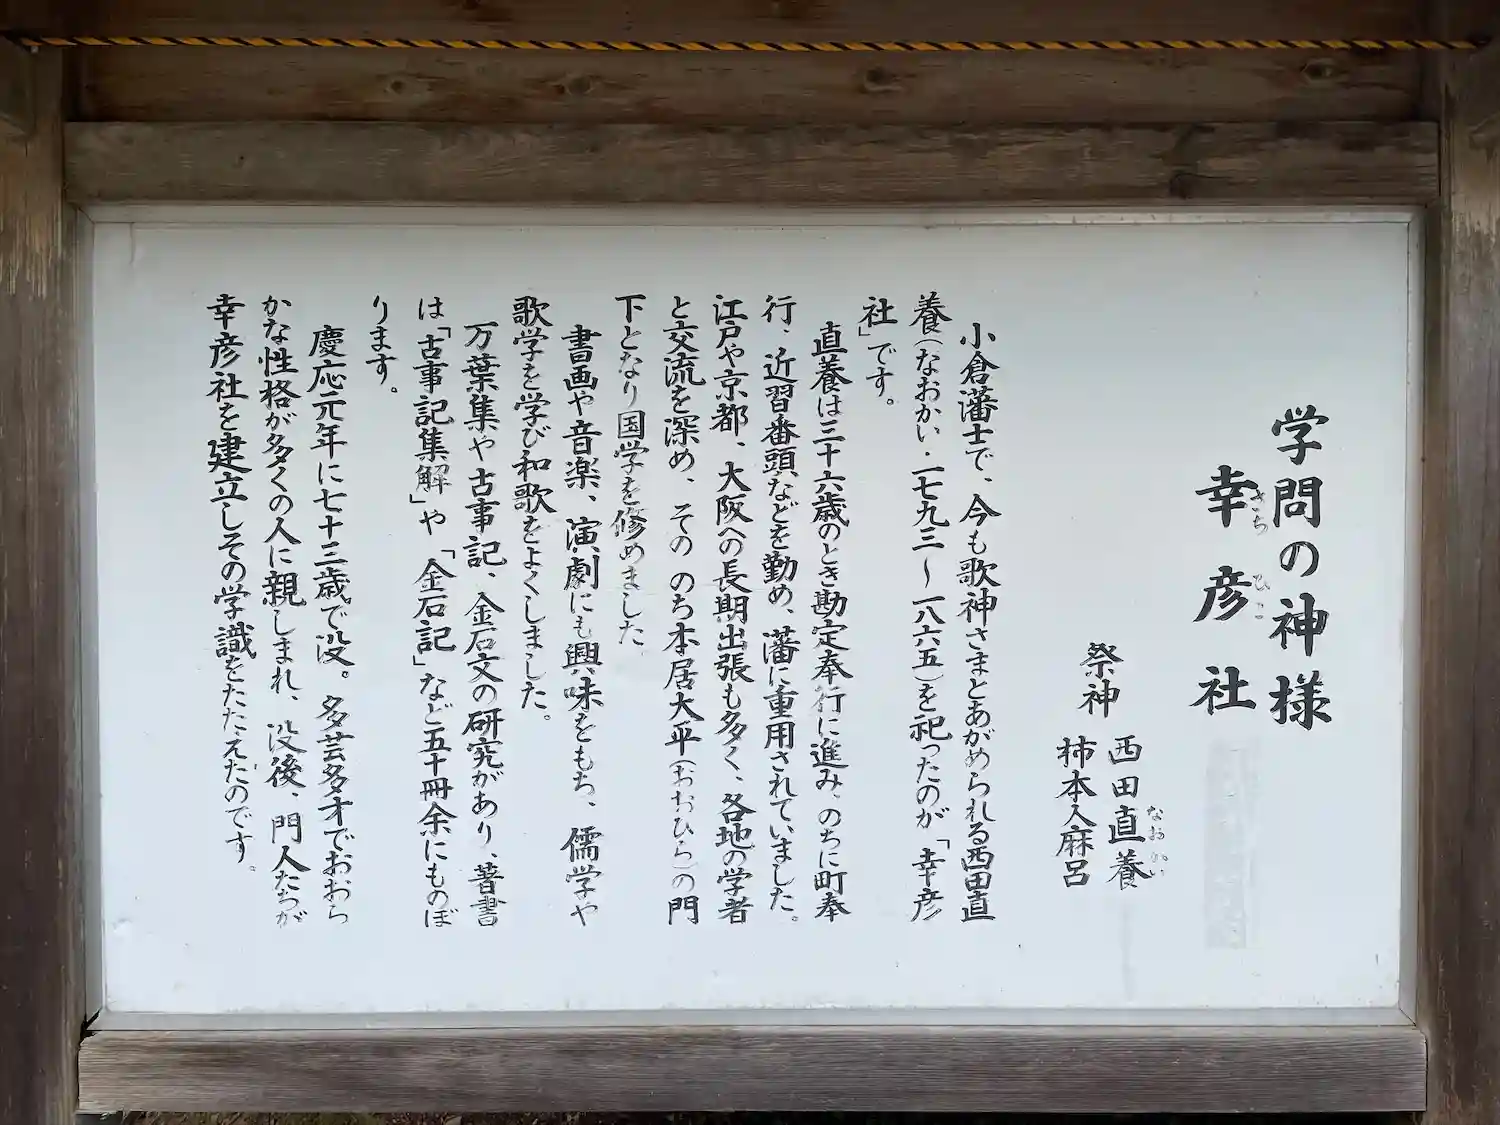 学問の神様
幸彦社
さちひこ
祭神 西田直養
なおかい
柿本人麻呂
小倉藩士で、今も歌神さまとあがめられる西田直
養(なおかい・一七九三〜一八六五)を祀ったのが「幸彦
社」です。
直養は三十六歳のとき勘定奉行に進み、のちに町奉
行、近習番頭などを勤め、藩に重用されていました。
江戸や京都、大阪への長期出張も多く、各地の学者
と交流を深め、その のち本居大平(おおひら)の門
下となり国学を修めました
書画や音楽、演劇にも興味をもち、儒学や
歌学を学び和歌をよくしました。
万葉集や古事記、金石文の研究があり、著書
は「古事記集解」や「金石記」など五十冊余にものぼ
ります。
慶応元年に七十三歳で没。多芸多才でおおら
かな性格が多くの人に親しまれ、没後、門人たちが
幸彦社を建立しその学識をたたえたのです。